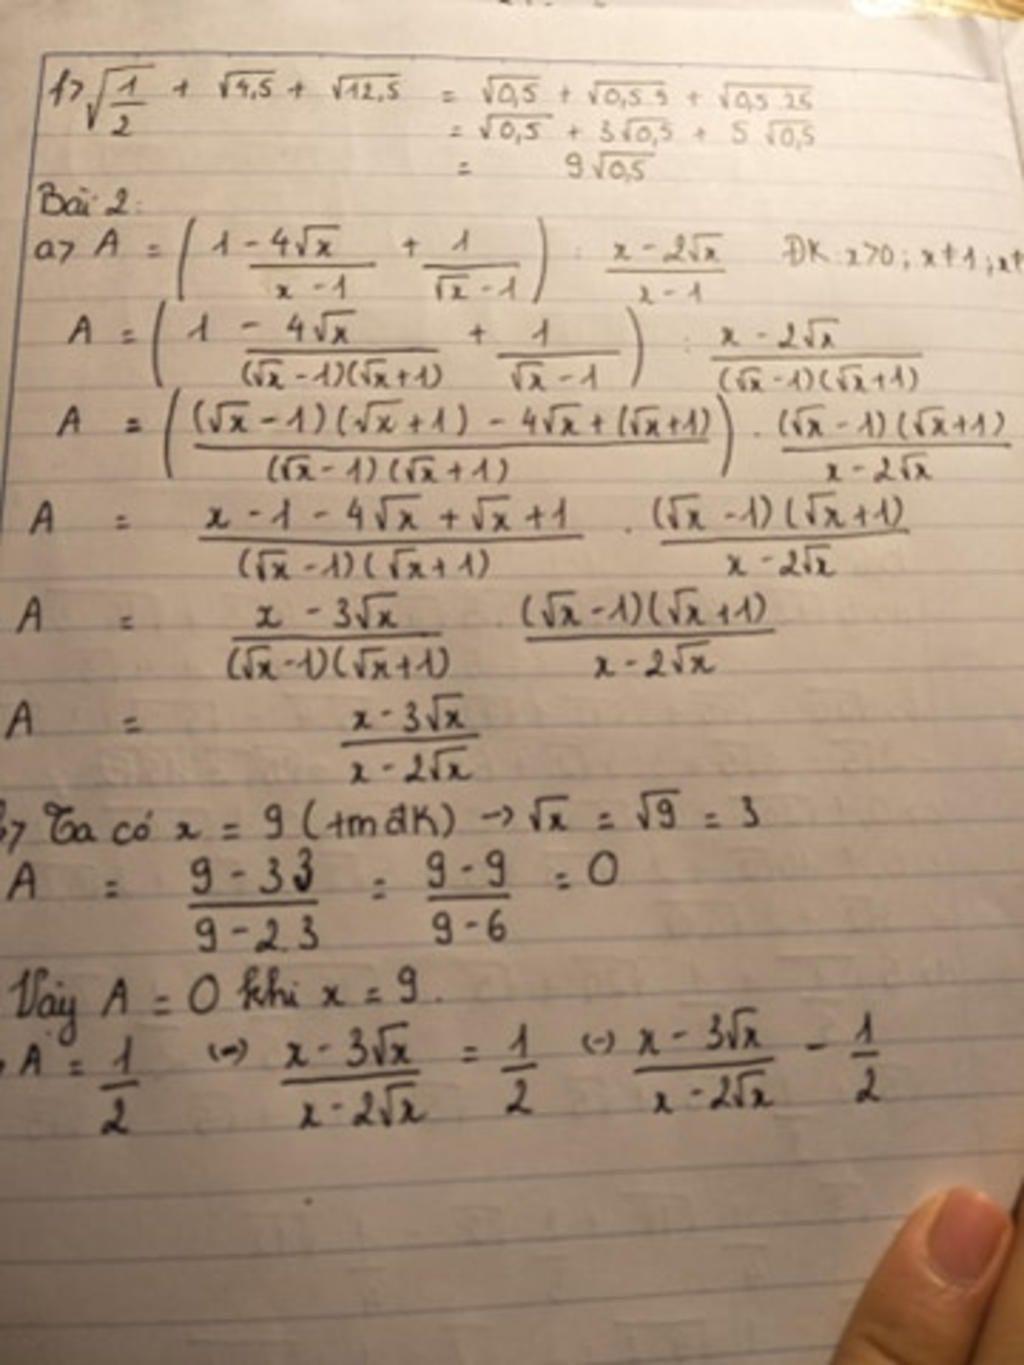 f> √(1/2) + √4,5 + √12,5 = √0,5 + √0,5.9 + √0,5.25
= √0,5 + 3√0,5 + 5√0,5
= 9√0,5
Bài 2:
a> A = (1 - 4√x/(x - 1) + 1/(√x - 1)) : (x - 2√x)/(x - 1) ĐK: x>0; x≠1; x≠
A = (1 - 4√x/((√x - 1)(√x + 1)) + 1/(√x - 1)) : (x - 2√x)/((√x - 1)(√x + 1))
A = (((√x - 1)(√x + 1) - 4√x + (√x + 1))/((√x - 1)(√x + 1))) . ((√x - 1)(√x + 1))/(x - 2√x)
A = (x - 1 - 4√x + √x + 1)/((√x - 1)(√x + 1)) . ((√x - 1)(√x + 1))/(x - 2√x)
A = (x - 3√x)/((√x - 1)(√x + 1)) ((√x - 1)(√x + 1))/(x - 2√x)
A = (x - 3√x)/(x - 2√x)
b> Ta có x = 9 (tmđk) → √x = √9 = 3
A = (9 - 3.3)/(9 - 2.3) = (9 - 9)/(9 - 6) = 0
Vậy A = 0 khi x = 9.
A = 1/2 (=) (x - 3√x)/(x - 2√x) = 1/2 (=) (x - 3√x)/(x - 2√x) - 1/2